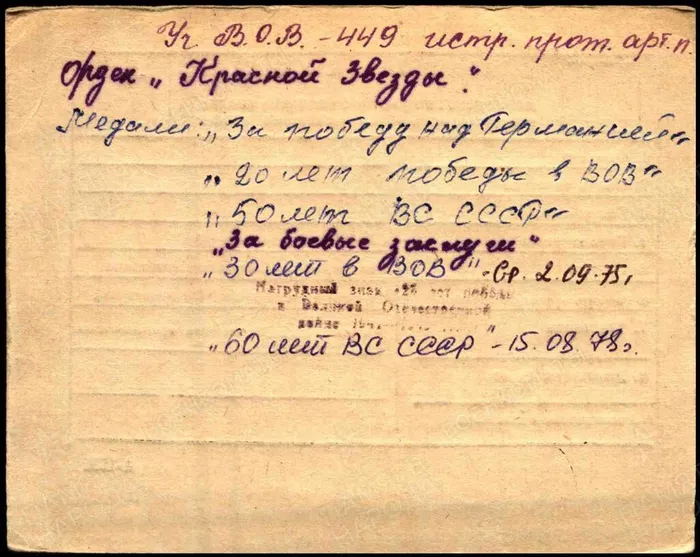 Уч В.О.В. - 449 истр. прот. арт. п.
Орден „Красной Звезды".
Медали: „За победу над Германией"
„20 лет победы в ВОВ"
„50 лет ВС СССР"
„За боевые заслуги"
„30 лет в ВОВ" - Вр. 2.09.75г
Нагрудный знак „25 лет победы
в Великой Отечественной
войне
„60 лет ВС СССР - 15.08.78г.